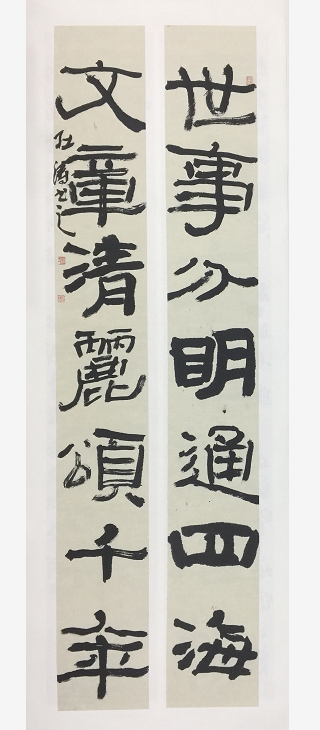 世事分明通四海
文章清麗頌千年